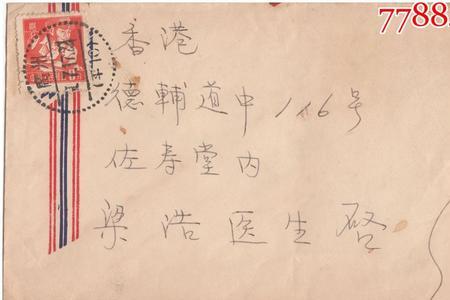 7788
香港
德輔道中116号
佐寿堂内
梁浩医生启